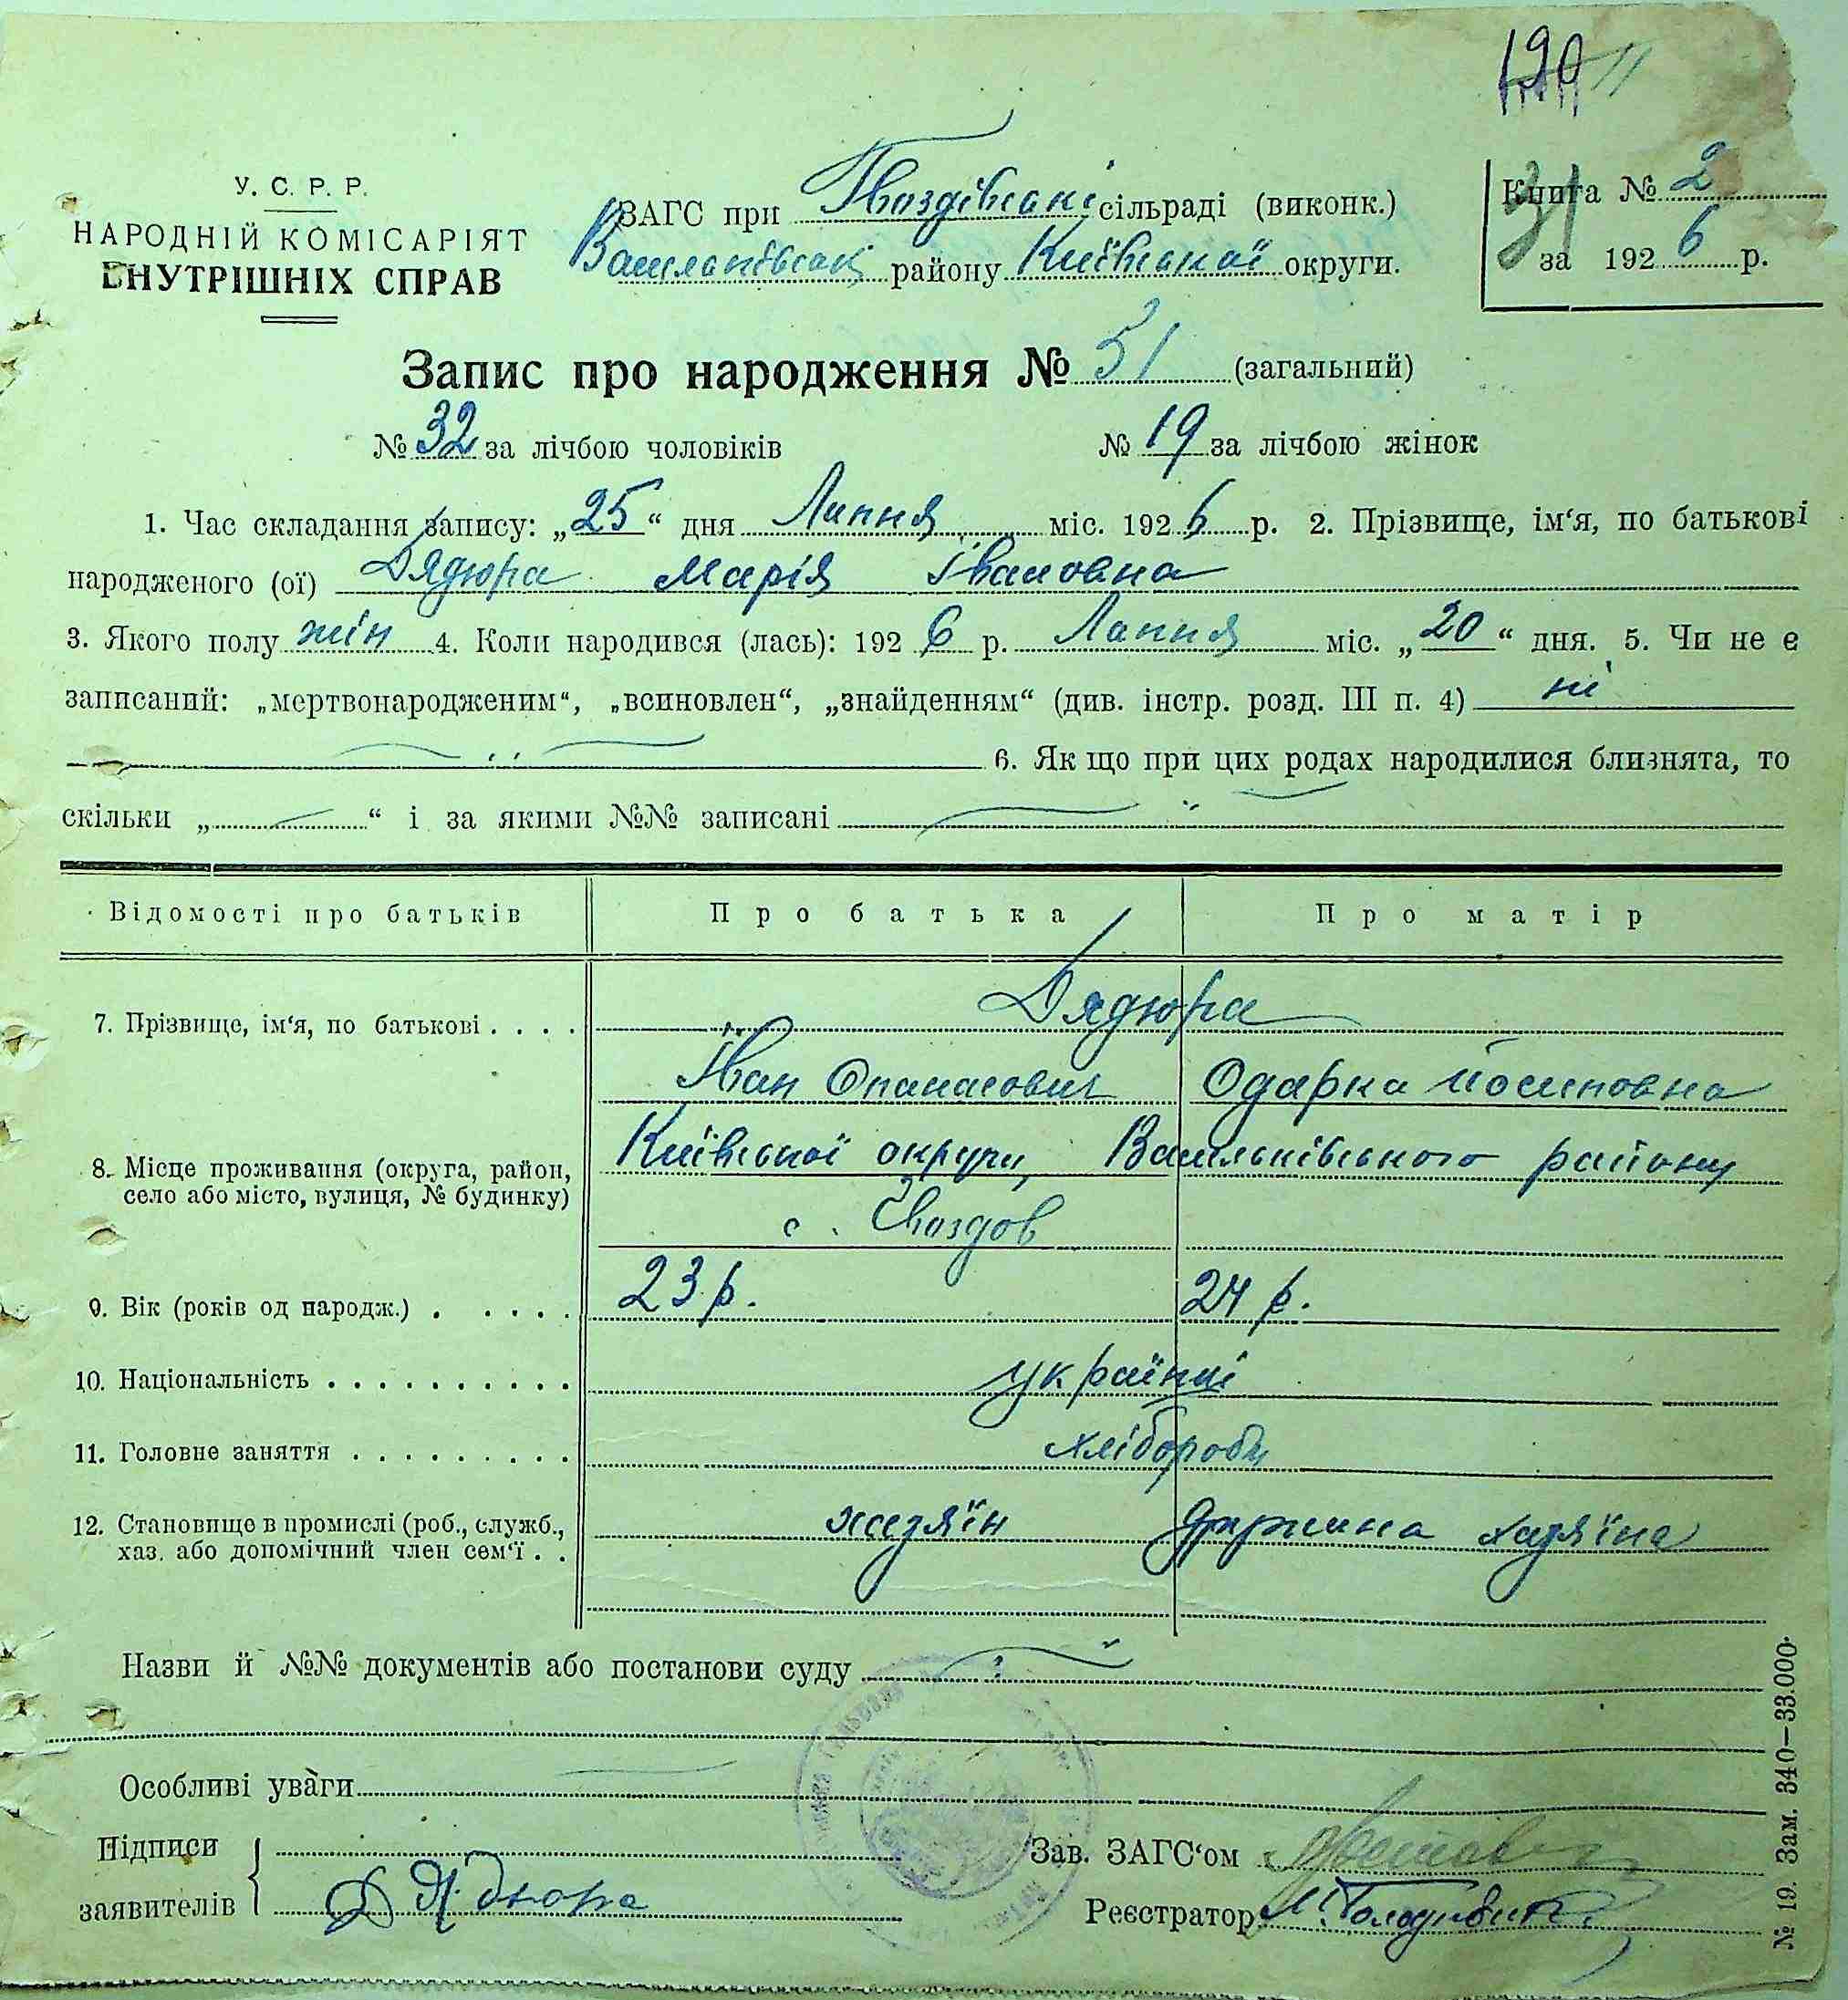 190 11
У. С. Р. Р.
НАРОДНІЙ КОМІСАРІЯТ
ВНУТРІШНІХ СПРАВ
ЗАГС при Гвоздівські сільраді (виконк.)
району Київської округи.
Книга № 2
31
за 1926 р.
Запис про народження № 51 (загальний)
№ 32 за лічбою чоловіків № 19 за лічбою жінок
1. Час складання запису: „25“ дня Липня міс. 1926 р. 2. Прізвище, ім‘я, по батькові
народженого (ої) Дядюра Марія Івановна
3. Якого полу жін 4. Коли народився (лась): 1926 р. Липня міс. „20“ дня. 5. Чи не є
записаний: „мертвонародженим“, „всиновлен“, „знайденням“ (див. інстр. розд. III п. 4) ні
6. Як що при цих родах народилися близнята, то
скільки „ “ і за якими №№ записані
Відомості про батьків Про батька Про матір
7. Прізвище, ім‘я, по батькові . . . . Дядюра
Іван Опанасович Одарка Йосиповна
8. Місце проживання (округа, район,
село або місто, вулиця, № будинку)
Київської округи, Васильківського району
с. Гвоздов
9. Вік (років од народж.) . . . . . 23 р. 24 р.
10. Національність . . . . . . . . . . українці
11. Головне заняття . . . . . . . . . хлібороби
12. Становище в промислі (роб., служб.,
хаз. або допомічний член сем‘ї . .
хазяїн дружина хазяїна
Назви й №№ документів або постанови суду
Особливі уваги
Підписи
заявителів
Д Я дюра
Зав. ЗАГС‘ом
Реєстратор
№ 19. Зам. 340—33.000.